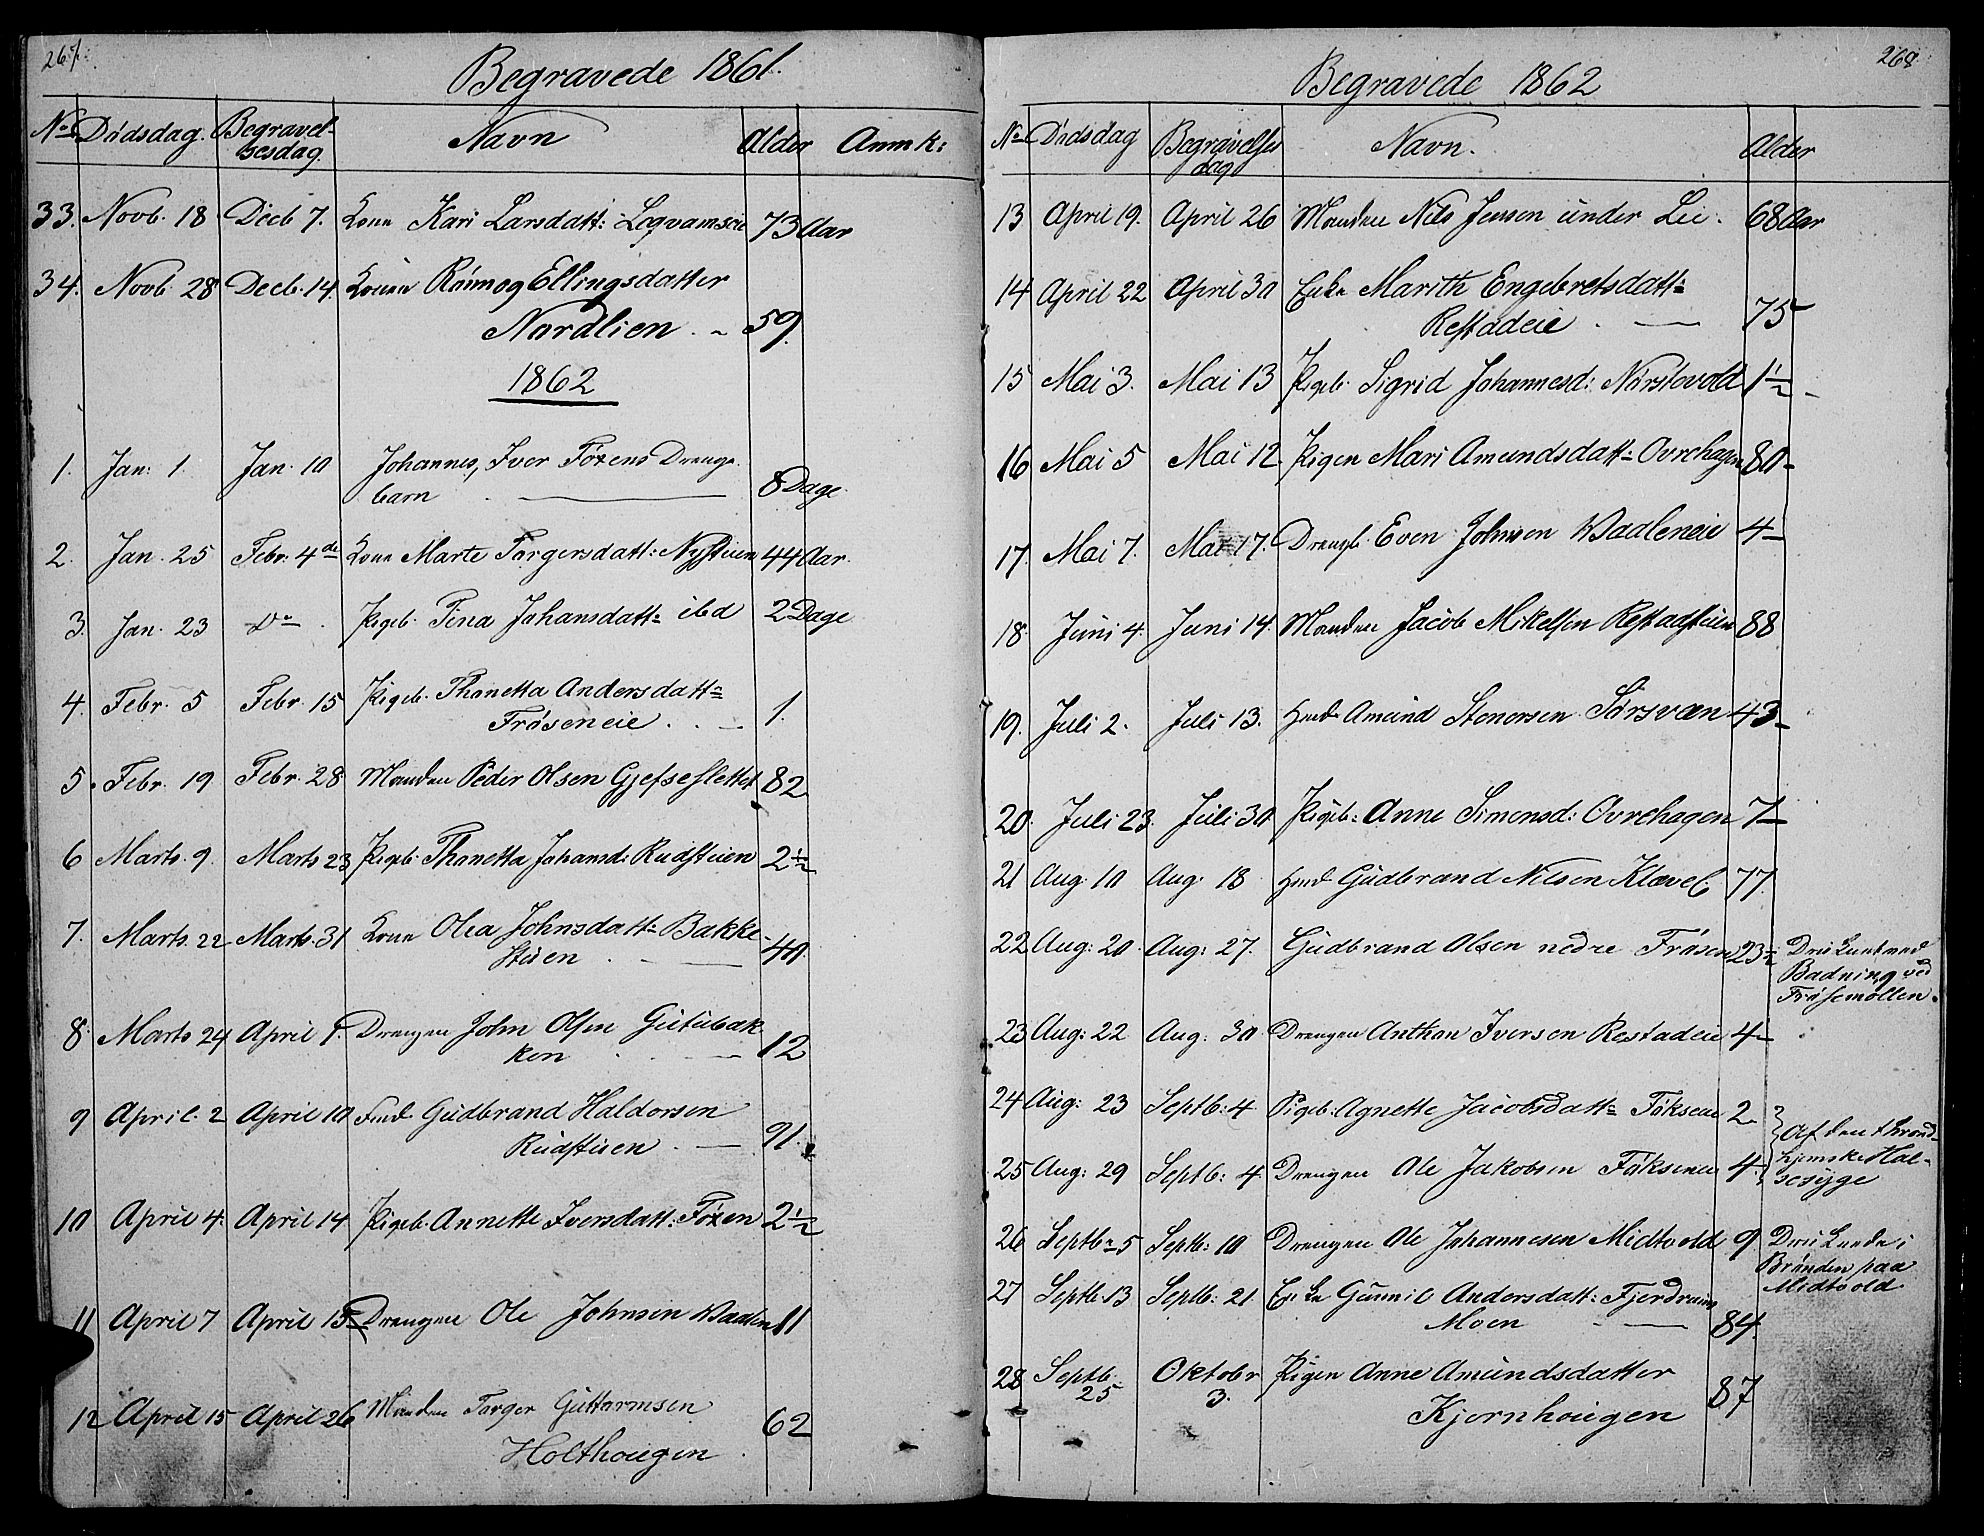 267.
Begravede 1861.
No Dödsdag. Begravel-
sesdag. Navn Alder Anmk:
33. Novb. 18 Decb 7. Kone Kari Larsdatt: Leqvamseie 73 Aar
34. Novb. 28 Decb. 14. Konen Rönnog Ellingsdatter
Nordlien . - 59.
1862
1. Jan: 1. Jan. 10 Johannes, Iver Föxens Drenge-
barn 8 Dage.
2. Jan. 25 Febr. 4de Kone Marte Torgersdatt: Nystuen 44 Aar.
3. Jan. 23 Do . Pigeb. Tina Johansdatt: ibd 2 Dage
4. Febr. 5 Febr. 15 Pigeb. Thonetta Andersdatt:
Fröseneie . . - 1.
5. Febr. 19 Febr. 28 Manden Peder Olsen Gjefsesletten 82
6 Marts. 9. Marts 23 Pigeb. Thonetta Johansd: Rudstuen 2½
7. Marts. 22 Marts. 31 Kone Olea Johnsdatt: Bakke-
Stuen . - 40.
8. Marts 24 April 9. Drengen John Olsen Gutubak-
ken . - 12
9 April. 2 April 10 Fmd Gudbrand Haldorsen
Rudstuen . - 91.
10 April 4. April 14 Pigeb. Annette Iversdatt: Föxen 2½
11 April 7 April 15 Drengen Ole Johnsen Vaalen 11
12 April 15 April 26 Manden Torger Guttormsen
Holthougen . 62
268.
Begravede 1862
No Dödsdag Begravelses
dag Navn. Alder
13 April 19. April 26 Manden Nils Jensen under Lee . 68 Aar
14 April 22 April 30 Enke Marith Engebretsdatt:
Restadeie . - 75
15 Mai 3. Mai 13 Pigeb. Sigrid Johannesd: Nörstvold 1½ -
16 Mai 5 Mai 12 Pigen Mari Amundsdatt: Ovrehagen 80 -
17. Mai 7. Mai 17. Drengb. Even Johnsen Vaaleneie 4 -
18. Juni 4. Juni 14. Manden Jacob Mikelsen Restadstuen 88
19. Juli 2. Juli 13. Gmd Amund Stenersen Sörsvæn 43 -
20. Juli 23. Juli 30 Pigeb: Anne Simensd: Ovrehagen 7 -
21 Aug. 10 Aug. 18 Gmd Gudbrand Nilsen Klævel 77
22 Aug: 20 Aug: 27. Gudbrand Olsen nedre Frösen 23½ Druknet ved
Badning ved
Frösemöllen.
23 Aug: 22 Aug. 30 Drengen Anthon Iversen Restadeie 4 -
24 Aug: 23 Septb: 4 Pigeb: Agnette Jacobsdatt: Föksene 2
Af den thrond-
25 Aug: 29 Septb: 4. Drengen Ole Jakobsen Föksene 4. hjemske Hal-
sesyge
26 Septbr 5 Septb: 10 Drengen Ole Johannesen Midtvold 9 Druknede i
Brönden paa
Midtvold
27 Septb. 13 Septb: 21 Enke Gunnil Andersdatt: Fjerdrum
Moen - 84.
28 Septb.
25 Oktobr
3. Pigen Anne Amundsdatter
Kjernhougen 87